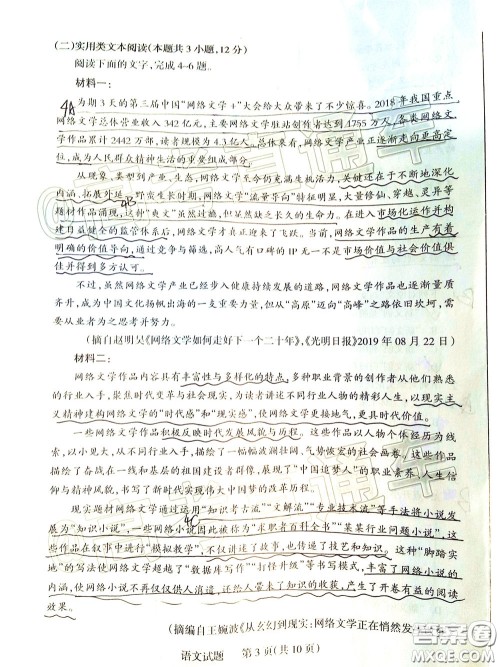 (二)实用类文本阅读(本题共3小题,12分)
阅读下面的文字,完成4-6题。
材料一:
4A
为期3天的第三届中国“网络文学+”大会给大众带来了不少惊喜。2018年我国重点
网络文学总体营业收入342亿元,主要网络文学驻站创作者达到1755万人,各类网络文
学作品累计2442万部,读者规模为4.3亿人。总体来看,网络文学产业正逐渐走向更高定
位,成为人民群众精神生活的重要组成部分。
从现象、类型到产业、生态,网络文学二十余年的发展充满生机活力,关键还在于不断地深化
内涵、拓展外延。野蛮生长时期,网络文学“流量导向”特征明显,大量修仙、穿越、灵异等
题材作品涌现,这种“爽文”虽然过瘾,但显然缺乏长久的生命力。在进入市场化运作并构
4B
建日益健全的监管体系后,网络文学才真正迎来了飞跃。当前,网络文学作品的生产有着
明确的价值导向,通过竞争与筛选,高人气有口碑的IP无一不是市场价值与社会价值俱
佳并得到多方认可。
不过,虽然网络文学产业已经步入健康持续发展的道路,网络文学作品也逐渐量质
齐升,成为中国文化扬帆出海的一支重要力量,但从“高原”迈向“高峰”之路依旧坎坷,需
要从业者为之思考并努力。
(摘自赵明昊《网络文学如何走好下一个二十年》,《光明日报》2019年08月22日)
材料二:
网络文学作品内容具有丰富性与多样化的特点,多种职业背景的创作者从他们熟悉
的行业入手,聚焦时代变革与社会现实,为读者讲述不同行业人物的精彩人生,以现实主
义精神建构网络文学的“时代感”和“现实感”,使网络文学更接地气,更具时代价值。
一些网络文学作品积极反映时代发展风貌与历程。这些作品以人物个体经历为线
索,以小见大,从不同行业入手,描绘了一幅幅波澜壮阔、气势恢宏的社会画卷。这些作品
描绘了奋战在一线和基层的祖国建设者群像,展示了“中国追梦人”的职业素养、人生信
仰与精神面貌,书写了新时代实现伟大中国梦的改革历程。
现实题材网络文学通过运用“知识考古流”“文解流”“专业技术流”等手法将小说发
4C
展为“知识小说”,一些网络小说因此被称为“求职者百科全书”“某某行业问题小说”,这
些作品在叙事中进行“模拟教学”,不仅讲述了故事,也传递了技艺和知识。这种“脚踏实
地”的写法使网络文学超越了“数据库写作”“打怪升级”等书写模式,丰富了网络小说的
内涵,使网络小说不再仅仅供人消遣,还给人带来了知识的收获,产生了开卷有益的阅读
效果。
(摘编自王婉波《从玄幻到现实:网络文学正在悄然发
语文试题 第3页(共10页)